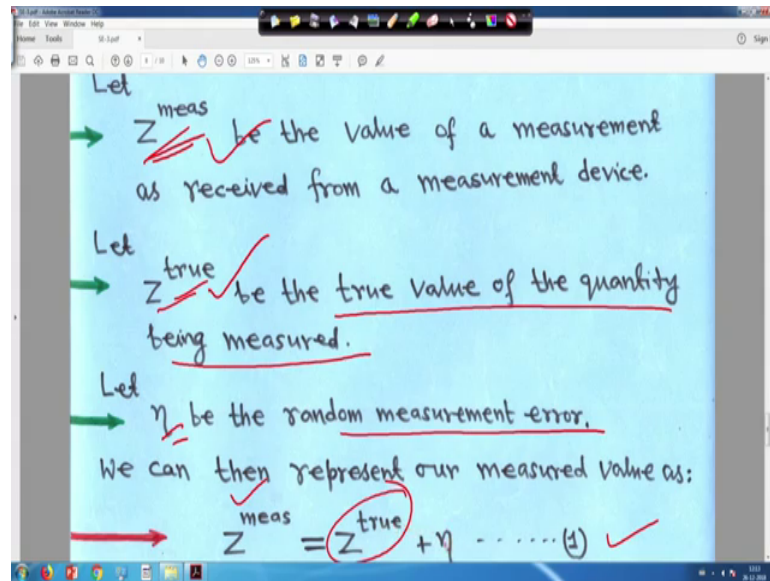 SE-3.pdf - Adobe Acrobat Reader DC
File Edit View Window Help
Home Tools SE-3.pdf × Sign
125%
Let
Z^meas be the value of a measurement
as received from a measurement device.
Let
Z^true be the true value of the quantity
being measured.
Let
η be the random measurement error.
We can then represent our measured value as:
Z^meas = Z^true + η ⋯⋯ (1)